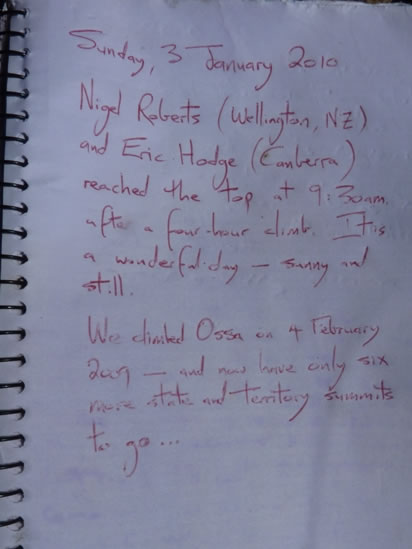 Sunday, 3 January 2010.
Nigel Roberts (Wellington, NZ)
and Eric Hodge (Canberra)
reached the top at 9:30am
after a four-hour climb. It is
a wonderful day — sunny and
still.
We climbed Ossa on 4 February
2009 — and now have only six
more state and territory summits
to go...